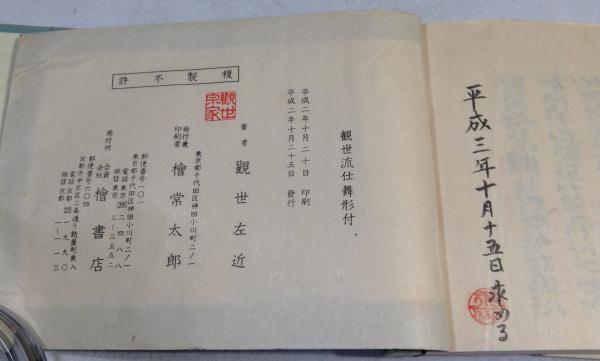 平成三年十月十五日 求める
観世流仕舞形付
平成二年十月二十日 印刷
平成二年十月二十五日 發行
著者 觀世左近
觀世宗家
東京都千代田区神田小川町二ノ一
発行兼印刷者 檜常太郎
複製不許
郵便番号一〇一
東京都千代田区神田小川町二ノ一
電話東京(291)二四八八
振替東京 三ー三五五二
発行所 合資会社 檜書店
郵便番号六〇四
京都市中京区二条通り麩屋町東入
電話京都(231)一九九〇
振替京都 一ー一一三